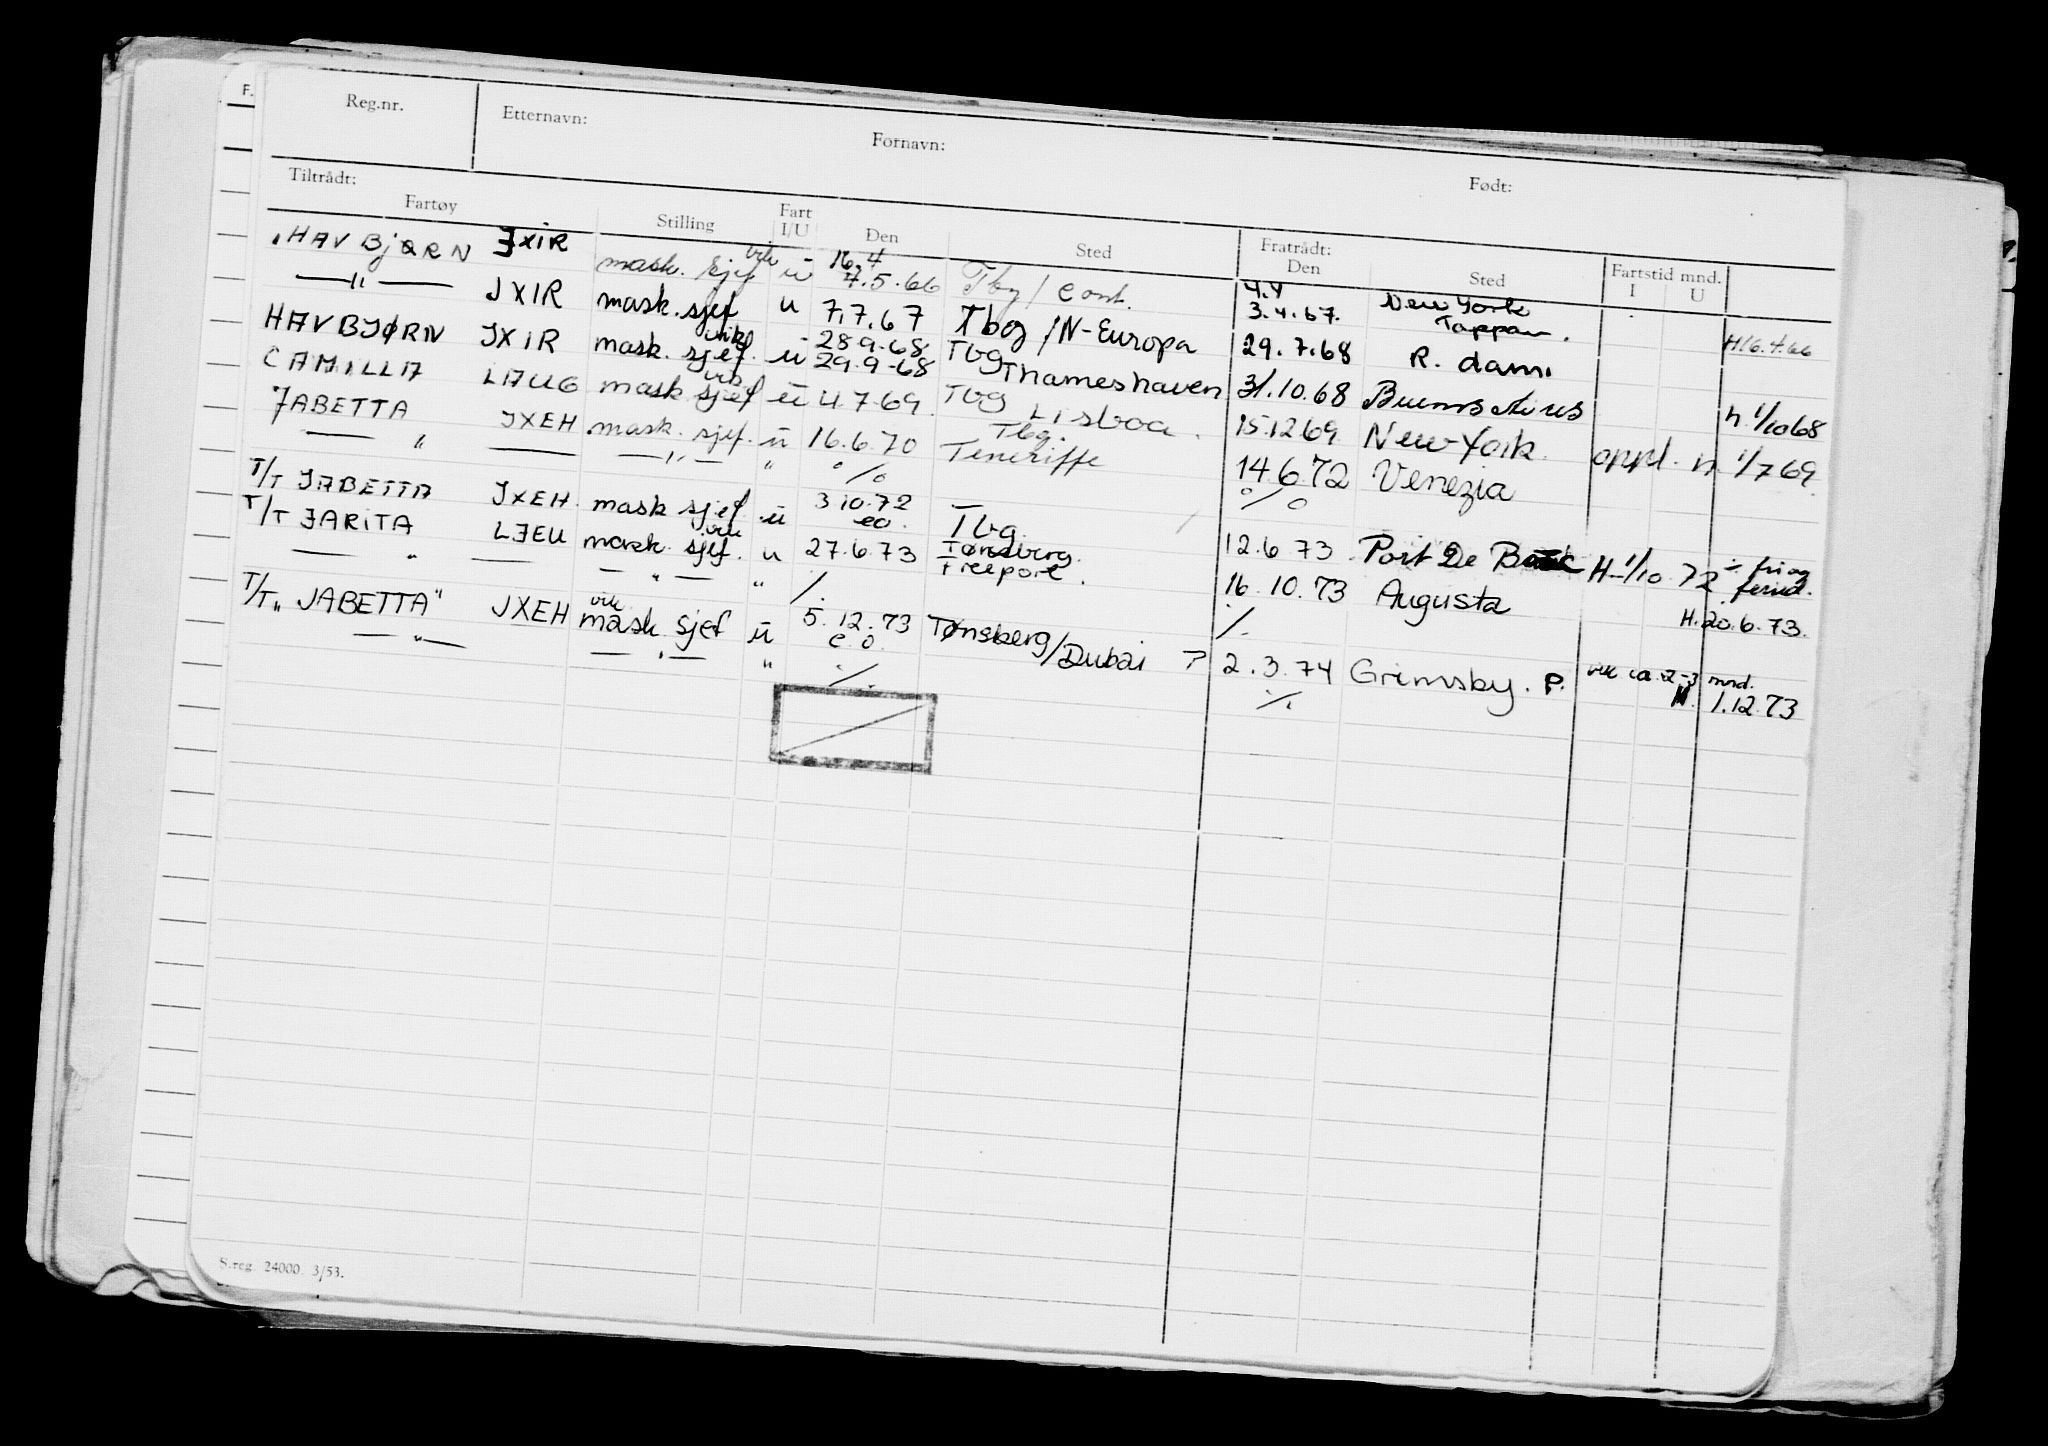 F.
Reg.nr. Etternavn: Fornavn: Født:
Tiltrådt: Fratrådt:
Fartøy Stilling Fart I/U Den Sted Den Sted Fartstid mnd. I U
"HAVBJØRN JXIR mask. sjef vik ü 16.4 7.5.66 Tbg / Cont. 4.4 3.4.67. New York Tappan. H16.4.66
—"— JXIR mask. sjef u 7.7.67 Tbg / N-Europa 29.7.68 R. dam.
HAVBJØRN JXIR mask. sjef. vik ü 28.9.68 29.9-68 Tbg Thameshaven 31.10.68 Buenos Aires h 1/10 68
CAMILLA LAUG mask sjef vik. ü 4.7.69. Tbg Lisboa. 15.12 69 New York. oppl. h 1/7 69.
JABETTA JXEH mask. sjef. ü 16.6.70 Tbg. Teneriffe 14.6.72 Venezia
— " — —"— " o/o o/o
T/T JABETTA JXEH. mask sjef. ü 3 10.72 eo. Tbg. 12.6 73 Port De Bouc H 1/10.72 ./. fri og feried.
T/T JARITA LJEU mask. sjef. vik u 27.6.73 Tønsberg. Freeport. 16.10.73 Augusta H.20.6.73.
— " — — " — " ./. ./.
T/T "JABETTA" JXEH vik. mask sjef ü 5.12.73 e.o. Tønsberg/Dubai ? 2.3.74 Grimsby. P. vik ca. 2-3 mnd. H. 1.12.73
— " — — " — " ./. ./.
S.reg. 24000. 3/53.